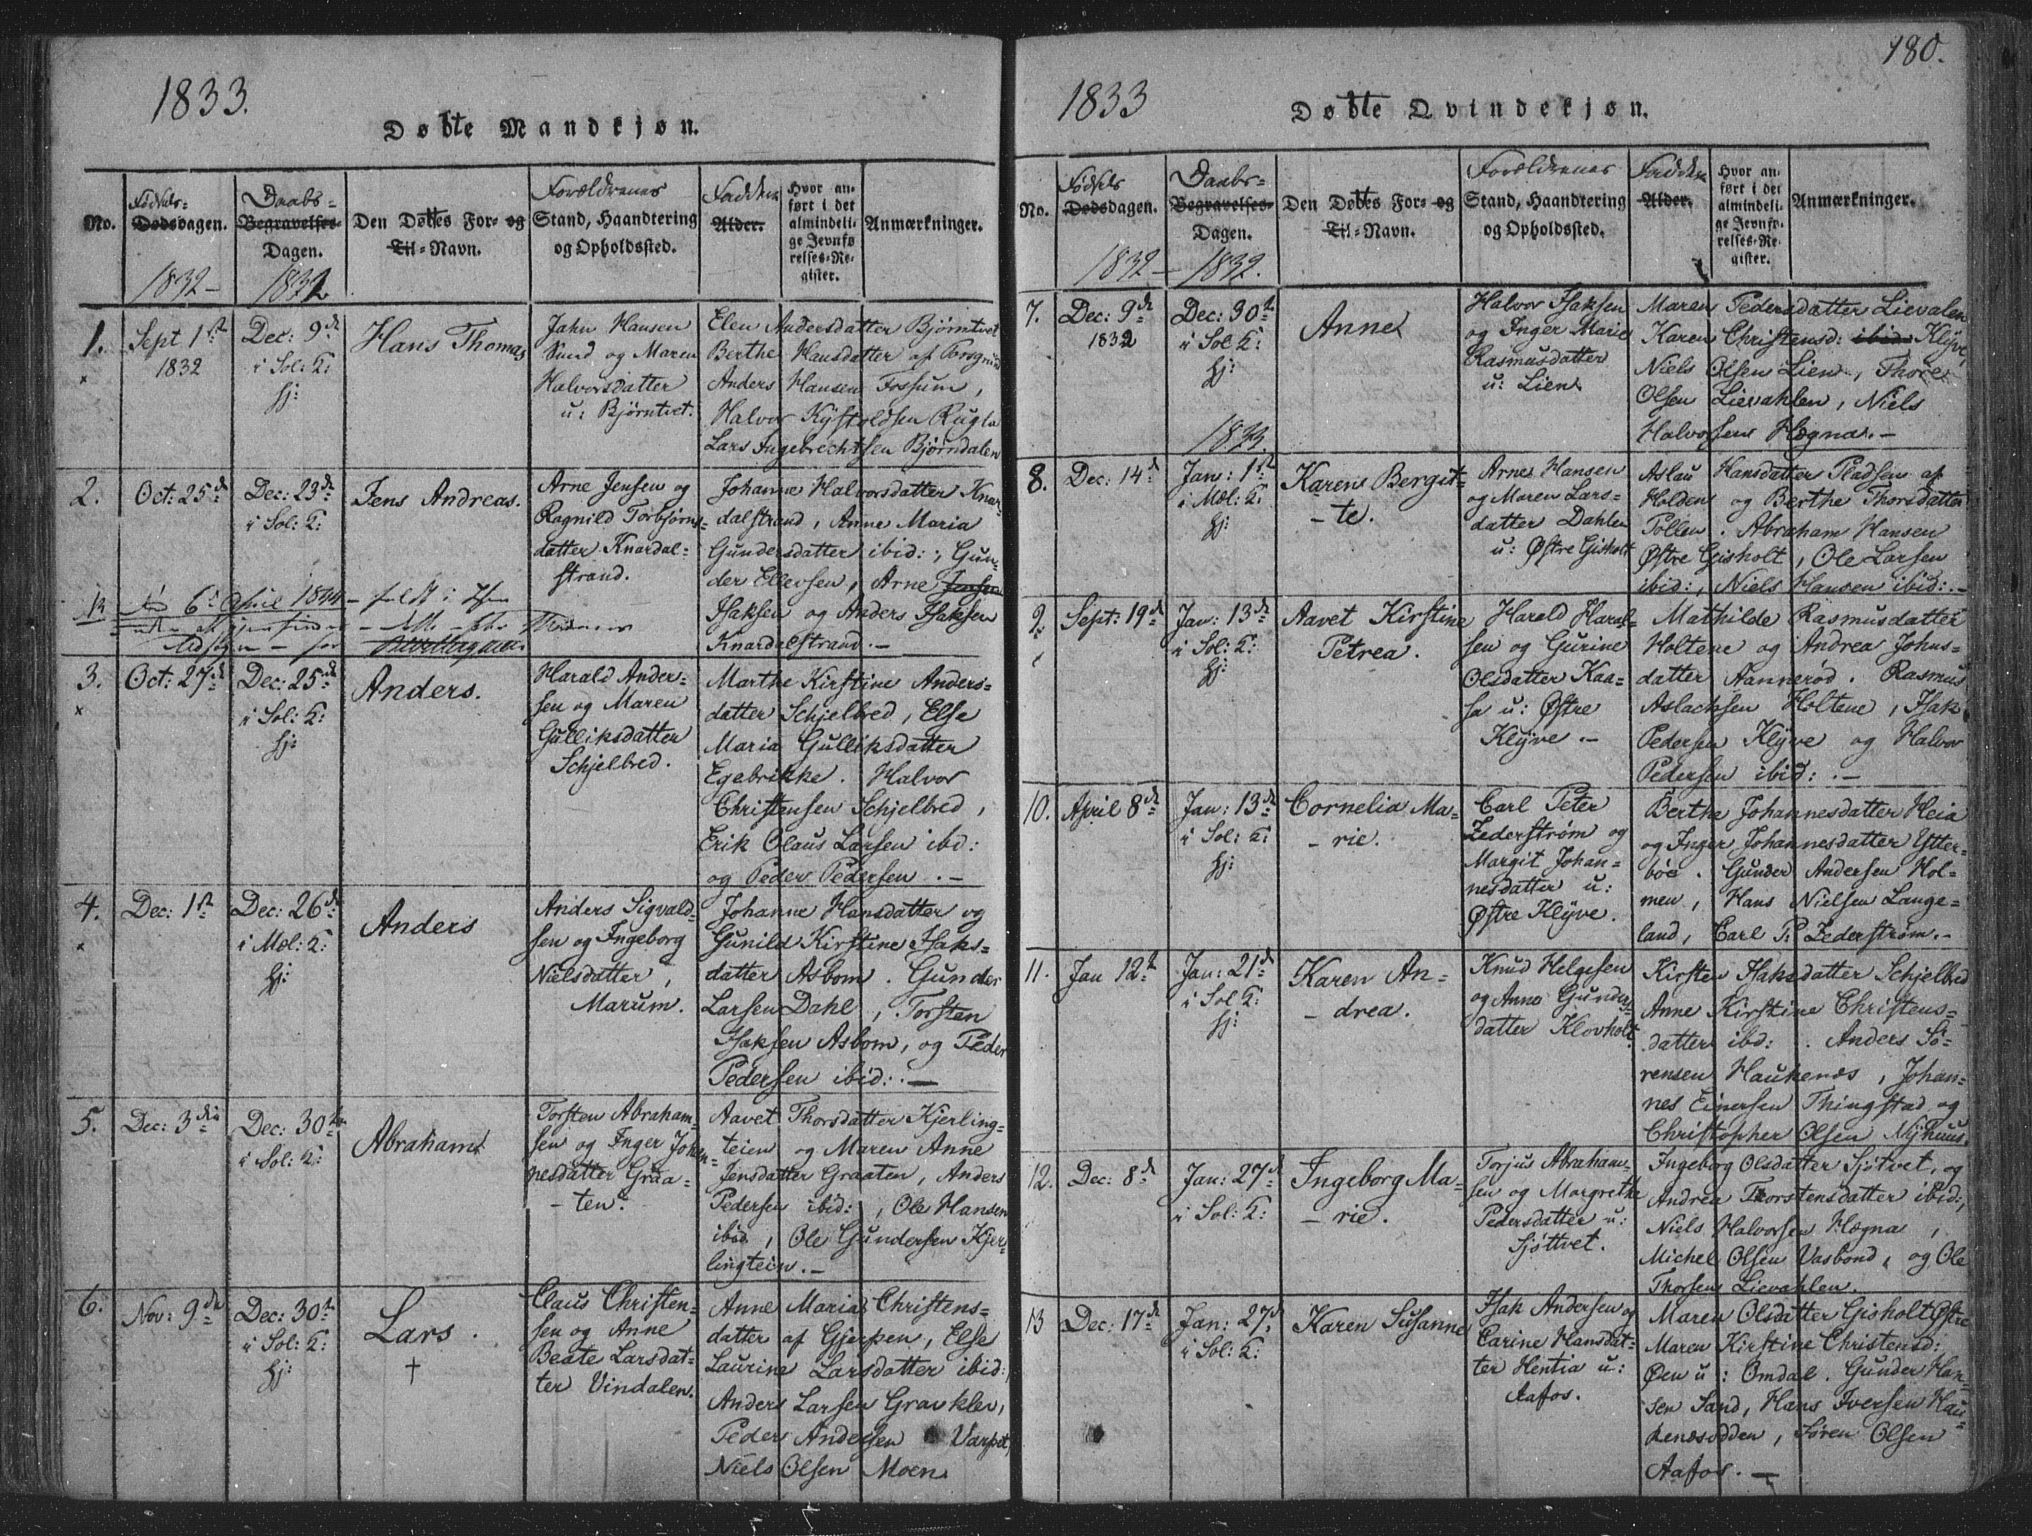 1833.
Døbte Mandkjøn.
No.
Fødsels-
Dødsdagen.
1832 –
Daabs-
Begravelses-
Dagen.
1832
Den Døbtes For- og
Til-Navn.
Forældrenes
Stand, Haandtering
og Opholdssted.
Faddere
Alder.
Hvor an-
ført i det
almindeli-
ge Jevnfø-
relses-Re-
gister.
Anmærkninger.
1.
Sept 1st
1832
Dec: 9de
i Sol: K:
hj:
Hans Thomas
Jahn Hansen
Sund og Maren
Halvorsdatter
u: Bjørntvet.
Elen Andersdatter Bjørntvet
Berthe Hansdatter af
Anders Hansen Fossum,
Halvor Kjystoldsen Rugla
Lars Ingebrechtsen Bjørndalen
2.
Oct: 25de
Dec: 23de
i Sol: K:
Jens Andreas.
Arne Jensen og
Ragnild Torbjørns-
datter Knardal-
strand.
Johanne Halvorsdatter Knar-
dalstrand, Anne Maria
Gundersdatter ibid:, Gun-
der Ellevsen, Arne Jensen
Isaksen og Anders Isaksen
Knardalstrand. –
6te April 1834
3.
Oct: 27de
Dec: 25de
i Sol: K:
hj:
Anders.
Harald Ander-
sen og Maren
Gulliksdatter
Schjelbred.
Marthe Kirstine Anders-
datter Schjelbred, Else
Maria Gulliksdatter
Egebrikke. Halvor
Christensen Schjelbred,
Erik Olaus Larsen ibd:
og Peder Pedersen . –
4.
Dec: 1st
Dec: 26de
i Mæl: K:
hj:
Anders
Anders Sigvald-
sen og Ingeborg
Nielsdatter,
Marum.
Johanne Hansdatter og
Gunild Kirstine Isaks-
datter Asbom. Gunder
Larsen Dahl, Torsten
Isaksen Asbom, og Peder
Pedersen ibid: . –
5.
Dec: 3die
Dec: 30te
i Sol: K:
Abraham
Torsten Abraham-
sen og Inger Johan-
nesdatter Graa-
– ten.
Aavet Thorsdatter Kjerling-
teien og Maren Anne
Jensdatter Graaten, Anders
Pedersen ibid:, Ole Hansen
ibid, Ole Gundersen Kjer-
lingtein. –
6.
Nov: 9de
Dec: 30te
i Sol: K:
hj:
Lars.
†
Claus Christen-
sen og Anne
Beate Larsdat-
ter Vindalen.
Anne Maria Christens-
datter af Gjerpen, Else
Laurine Larsdatter ibid:
Anders Larsen Gravklev,
Peder Andersen Varpet,
Niels Olsen Moen.
180.
1833
Døbte Qvindekjøn.
No.
Fødsels
Dødsdagen.
1832 –
Daabs-
Begravelses-
Dagen.
1832.
Den Døbtes For- og
Til-Navn.
Forældrenes
Stand, Haandtering
og Opholdssted.
Faddere
Alder.
Hvor an-
ført i det
almindeli-
ge Jevnfø-
relses-Re-
gister.
Anmærkninger.
7.
Dec: 9de
1832
Dec: 30te
i Sol: K:
hj:
Anne
Halvor Isaksen
og Inger Marie
Rasmusdatter
u: Lien
Maren Pedersdatter Lievalen
Karen Christensd: ibid: Klyve,
Niels Olsen Lien, Thore
Olsen Lievahlen, Niels
Halvorsen Hægna. –
1833
8.
Dec: 14de
Jan: 1st
i Mæl: K:
hj:
Karen Bergit-
– te.
Arne Hansen
og Maren Lars-
datter Dahlen
u: Østre Gisholt
Aslau Hansdatter Pladsen af
Holden og Berthe Thorsdatter
Tollen. Abraham Hansen
Østre Gisholt, Ole Larsen
ibid:, Niels Hansen ibid: . –
9
Sept: 19de
Jan: 13de
i Sol: K:
hj:
Aavet Kirstine
Petrea.
Harald Haral-
sen og Gurine
Olsdatter Kaa-
sa u: Østre
Klyve. –
Mathilde Rasmusdatter
Holtene og Andrea Johns-
datter Aannerød. Rasmus
Aslacksen Holtene, Isak
Pedersen Klyve og Halvor
Pedersen ibid: . –
10.
April 8de
Jan: 13de
i Sol: K:
hj:
Cornelia Ma-
– rie.
Carl Peter
Zederstrøm og
Margit Johan-
nesdatter u:
Østre Klyve.
Berthe Johannesdatter Heia
og Inger Johannesdatter Ytter-
bøe. Gunder Andersen Hol-
men, Hans Nielsen Lange-
land, Carl P: Zederstrøm. –
11.
Jan 12te
Jan: 21de
i Sol K:
hj:
Karen An-
– drea.
Knud Helgesen
og Anne Gunders-
datter Klovholt
Kirsten Isaksdatter Schjelbred
Anne Kirstine Christens-
datter ibd: . Anders Sö-
rensen Haukenæs, Johan-
nes Einersen Thingstad og
Christopher Olsen Myhuus.
12.
Dec: 8de
Jan: 27de
i Sol: K:
Ingeborg Ma-
– rie.
Torjus Abraham-
sen og Margrethe
Pedersdatter u:
Sjöttvet.
Ingeborg Olsdatter Sjötvet, og
Andrea Thorstensdatter ibid:,
Niels Halvorsen Hægna,
Michel Olsen Vasbond, og Ole
Thorsen Lievahlen.
13
Dec: 17de
Jan: 27de
i Sol: K:
Karen Susanne
Isak Andersen og
Carine Hansdat-
ter Hentia u:
Aafos.
Maren Olsdatter Gisholt Østre
Maren Kirstine Christensd:
Øen u: Omdal. Gunder Han-
sen Sand, Hans Iversen Hau-
kenæsodden, Søren Olsen
Aafos. –